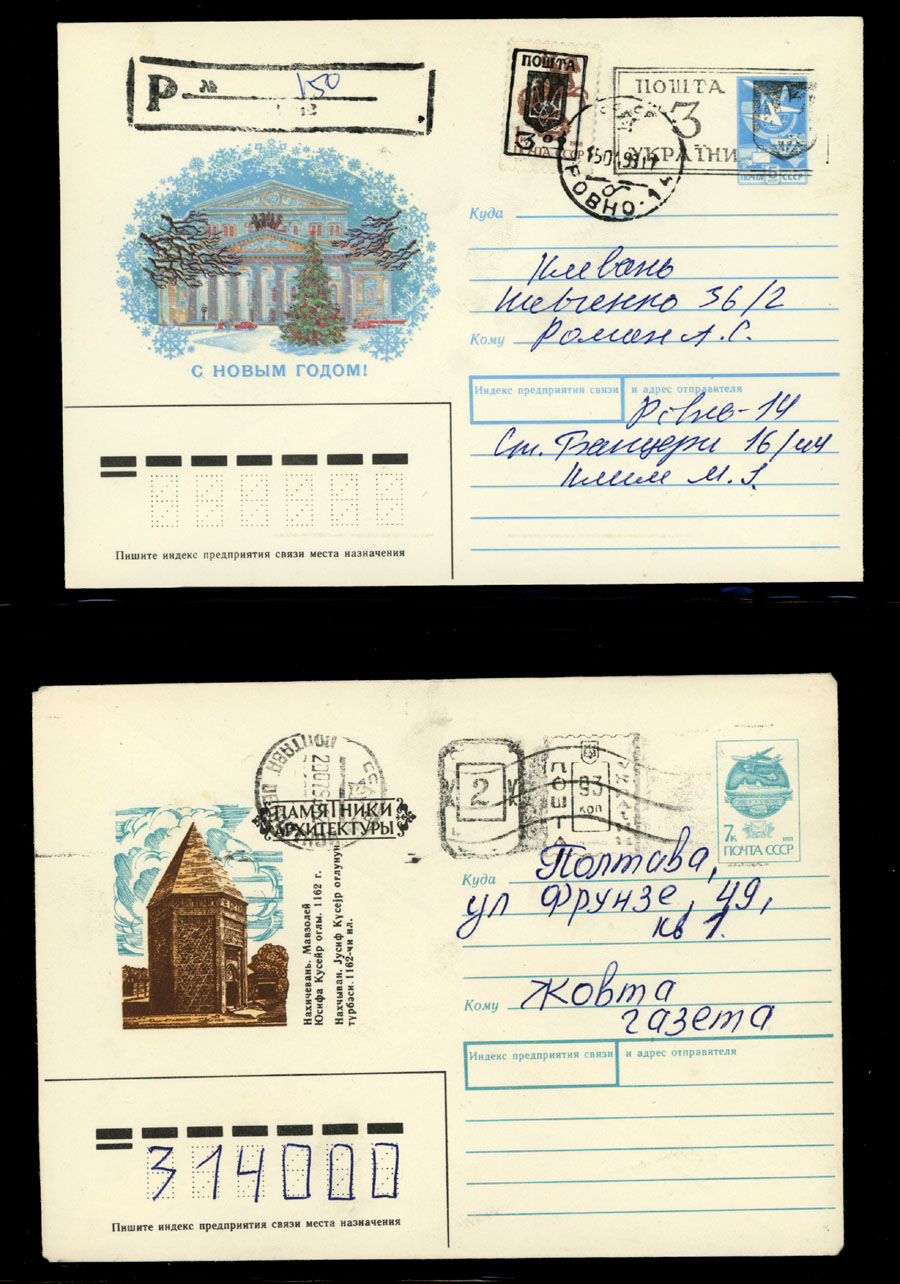 Р № 150
ПОШТА
3.00
ПОЧТА СССР
РОВНО-14
ПОШТА
3
УКРАЇНИ
5
ПОЧТА СССР
С НОВЫМ ГОДОМ!
Куда
Клевань
Шевченко 36/2
Кому Роман А.С.
Индекс предприятия связи и адрес отправителя
Рівне-14
Ст. Бандери 16/44
Клим М.
Пишите индекс предприятия связи места назначения
ПОЛТАВА
ПАМЯТНИКИ
АРХИТЕКТУРЫ
Нахичевань. Мавзолей
Юсифа Кусейр оглы. 1162 г.
Нахчыван. Јусиф Күсејр оғлунун
түрбәси. 1162-чи ил.
2
ПОШТА
93
коп
7к 1991
ПОЧТА СССР
Куда Полтава,
ул Фрунзе, 49,
кв 1.
Кому Жовта
газета
Индекс предприятия связи и адрес отправителя
314000
Пишите индекс предприятия связи места назначения